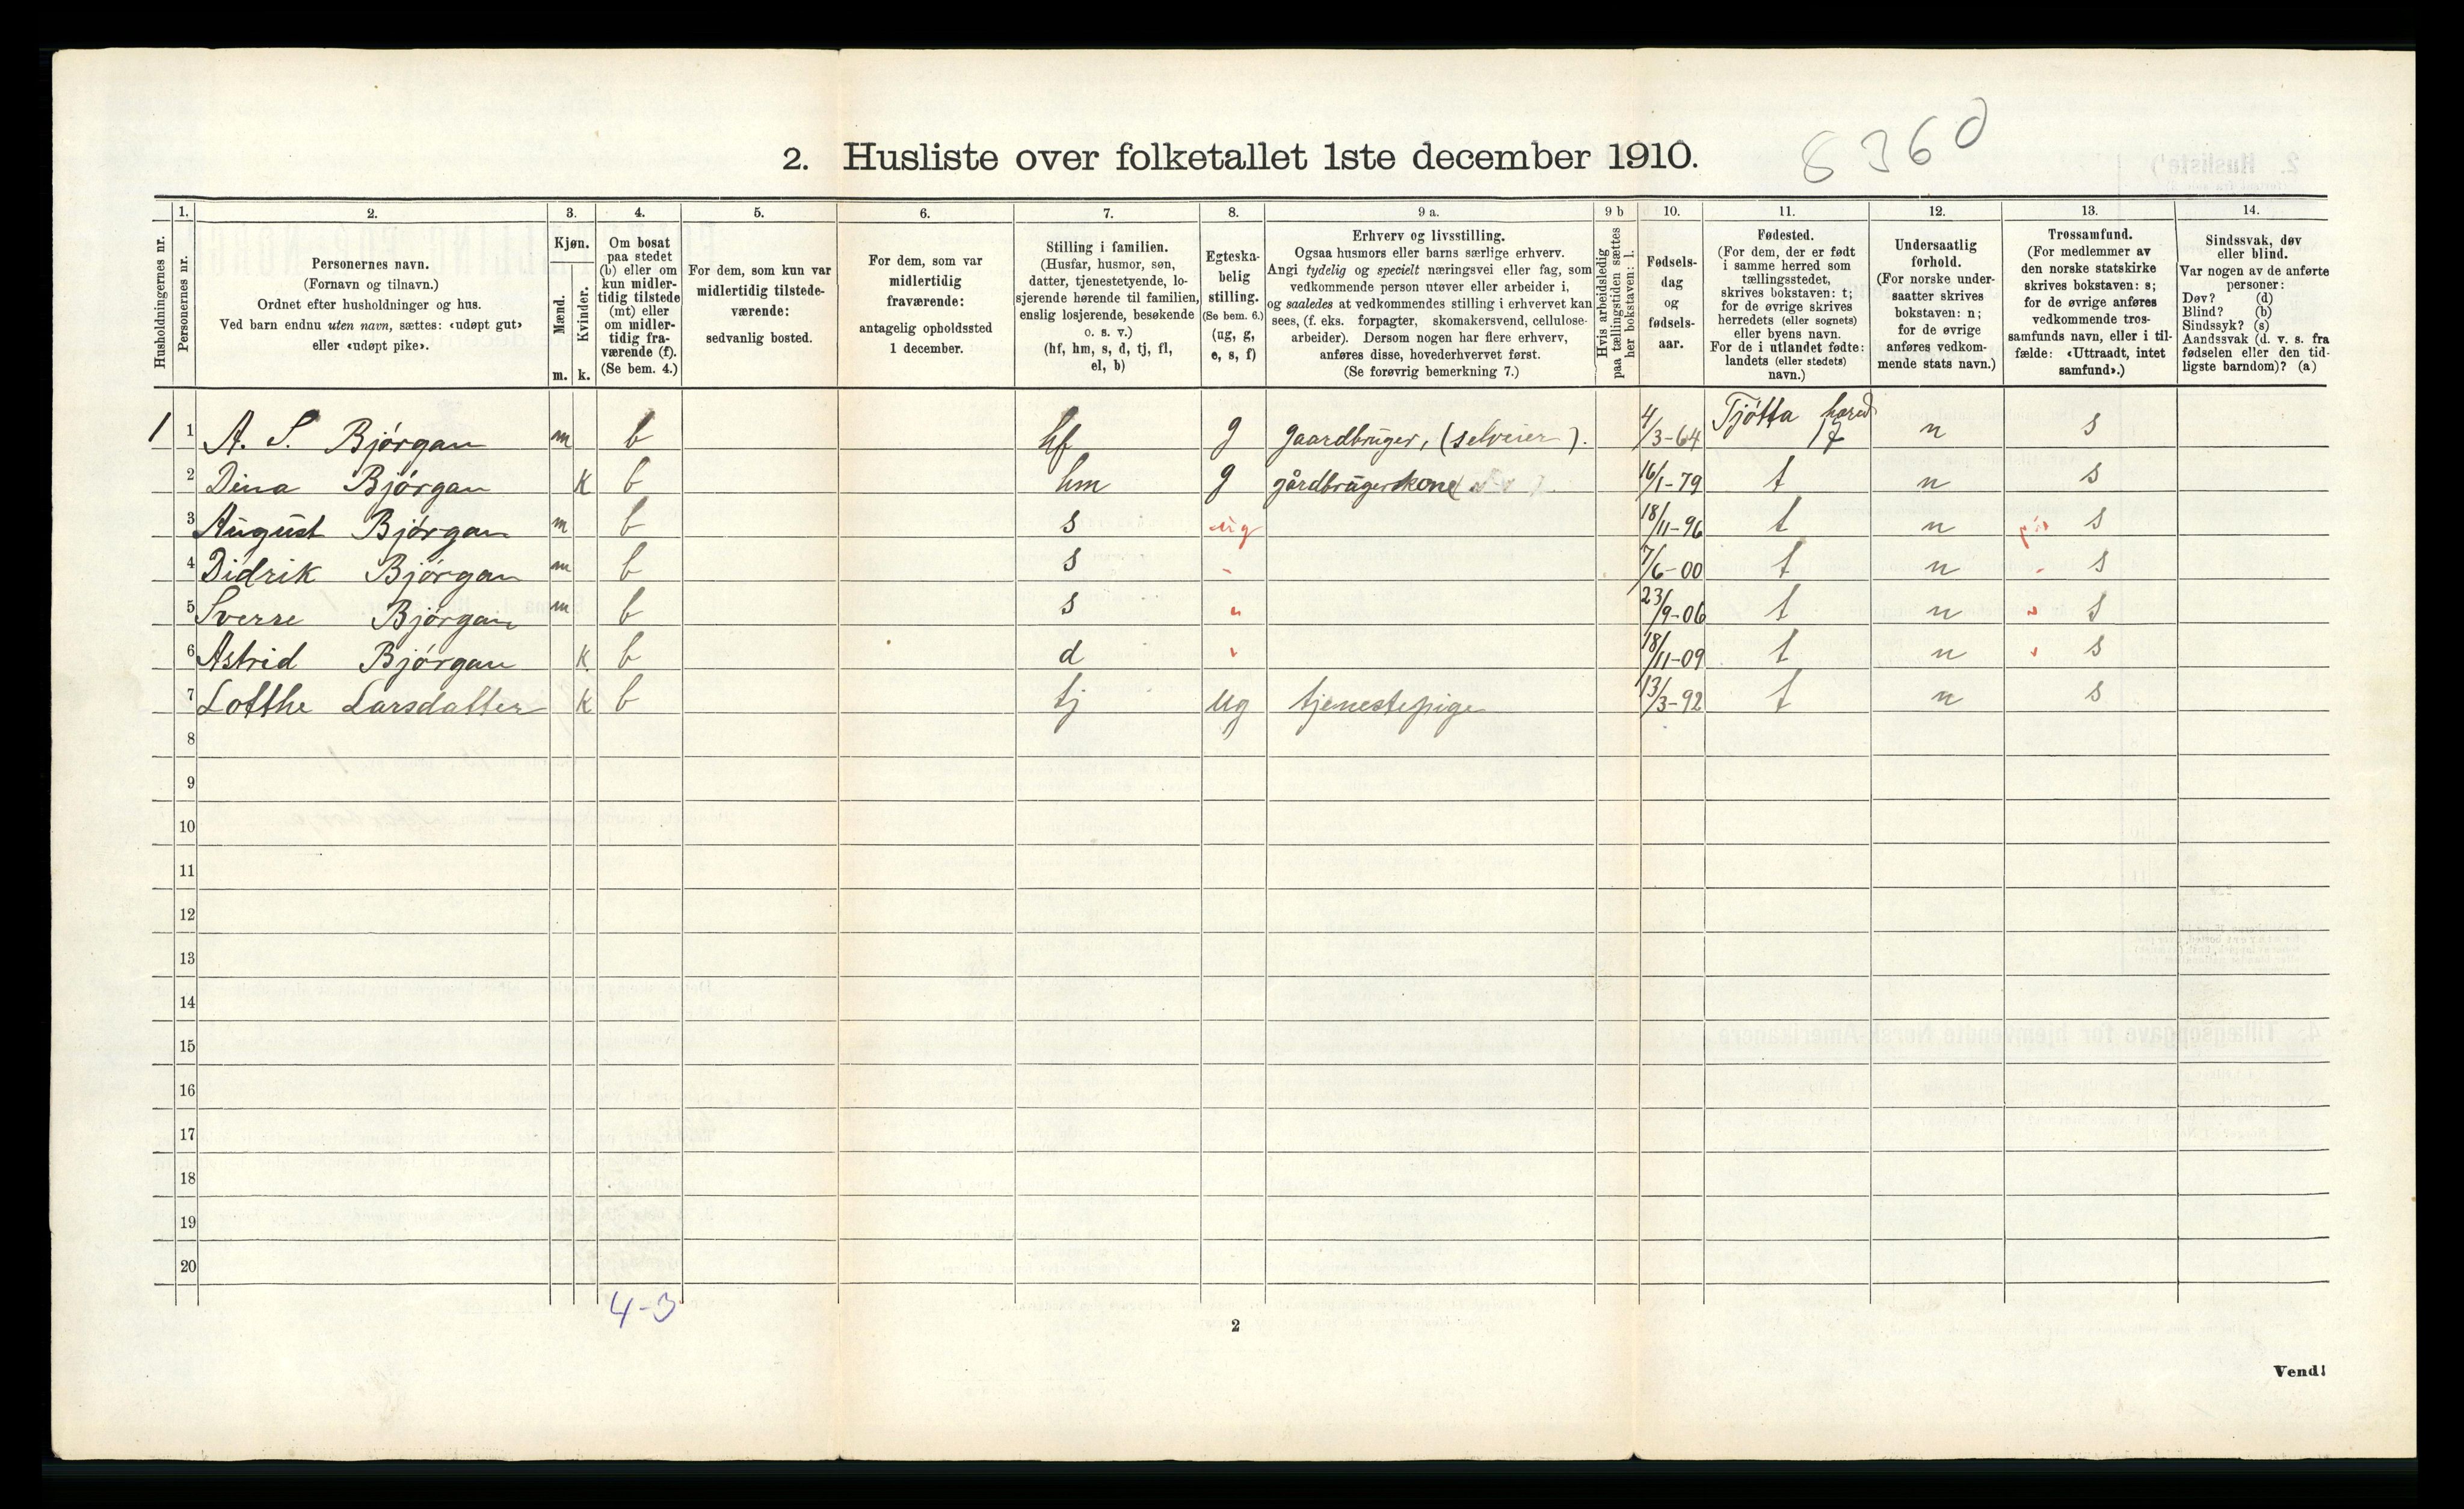 8360
2. Husliste over folketallet 1ste december 1910.
Husholdningernes nr.
1.
Personernes nr.
2.
Personernes navn.
(Fornavn og tilnavn.)
Ordnet efter husholdninger og hus.
Ved barn endnu uten navn, sættes: «udøpt gut»
eller «udøpt pike».
3.
Kjøn.
Mænd.
Kvinder.
m. k.
4.
Om bosat
paa stedet
(b) eller om
kun midler-
tidig tilstede
(mt) eller
om midler-
tidig fra-
værende (f).
(Se bem. 4.)
5.
For dem, som kun var
midlertidig tilstede-
værende:
sedvanlig bosted.
6.
For dem, som var
midlertidig
fraværende:
antagelig opholdssted
1 december.
7.
Stilling i familien.
(Husfar, husmor, søn,
datter, tjenestetyende, lo-
sjerende hørende til familien,
enslig losjerende, besøkende
o. s. v.)
(hf, hm, s, d, tj, fl,
el, b)
8.
Egteska-
belig
stilling.
(Se bem. 6.)
(ug, g,
e, s, f)
9 a.
Erhverv og livsstilling.
Ogsaa husmors eller barns særlige erhverv.
Angi tydelig og specielt næringsvei eller fag, som
vedkommende person utøver eller arbeider i,
og saaledes at vedkommendes stilling i erhvervet kan
sees, (f. eks. forpagter, skomakersvend, cellulose-
arbeider). Dersom nogen har flere erhverv,
anføres disse, hovederhvervet først.
(Se forøvrig bemerkning 7.)
9 b
Hvis arbeidsledig
paa tællingstiden sættes
her bokstaven: l.
10.
Fødsels-
dag
og
fødsels-
aar.
11.
Fødested.
(For dem, der er født
i samme herred som
tællingsstedet,
skrives bokstaven: t;
for de øvrige skrives
herredets (eller sognets)
eller byens navn.
For de i utlandet fødte:
landets (eller stedets)
navn.)
12.
Undersaatlig
forhold.
(For norske under-
saatter skrives
bokstaven: n;
for de øvrige
anføres vedkom-
mende stats navn.)
13.
Trossamfund.
(For medlemmer av
den norske statskirke
skrives bokstaven: s;
for de øvrige anføres
vedkommende tros-
samfunds navn, eller i til-
fælde: «Uttraadt, intet
samfund».)
14.
Sindssvak, døv
eller blind.
Var nogen av de anførte
personer:
Døv? (d)
Blind? (b)
Sindssyk? (s)
Aandssvak (d. v. s. fra
fødselen eller den tid-
ligste barndom)? (a)
1 1 A. S. Bjørgan m b hf g gaardbruger, (selveier). 4/3-64 Tjøtta hered 17 n s
2 Dina Bjørgan k b hm g gårdbrugerkone 16/1-79 t n s
3 August Bjørgan m b s ug 18/11-96 t n s
4 Didrik Bjørgan m b s 7/6-00 t n s
5 Sverre Bjørgan m b s " 23/9-06 t n s
6 Astrid Bjørgan k b d " 18/11-09 t n s
7 Lotthe Larsdatter k b tj ug tjenestepige 13/3-92 t n s
8
9
10
11
12
13
14
15
16
17
18
19
20
4-3
2
Vend!